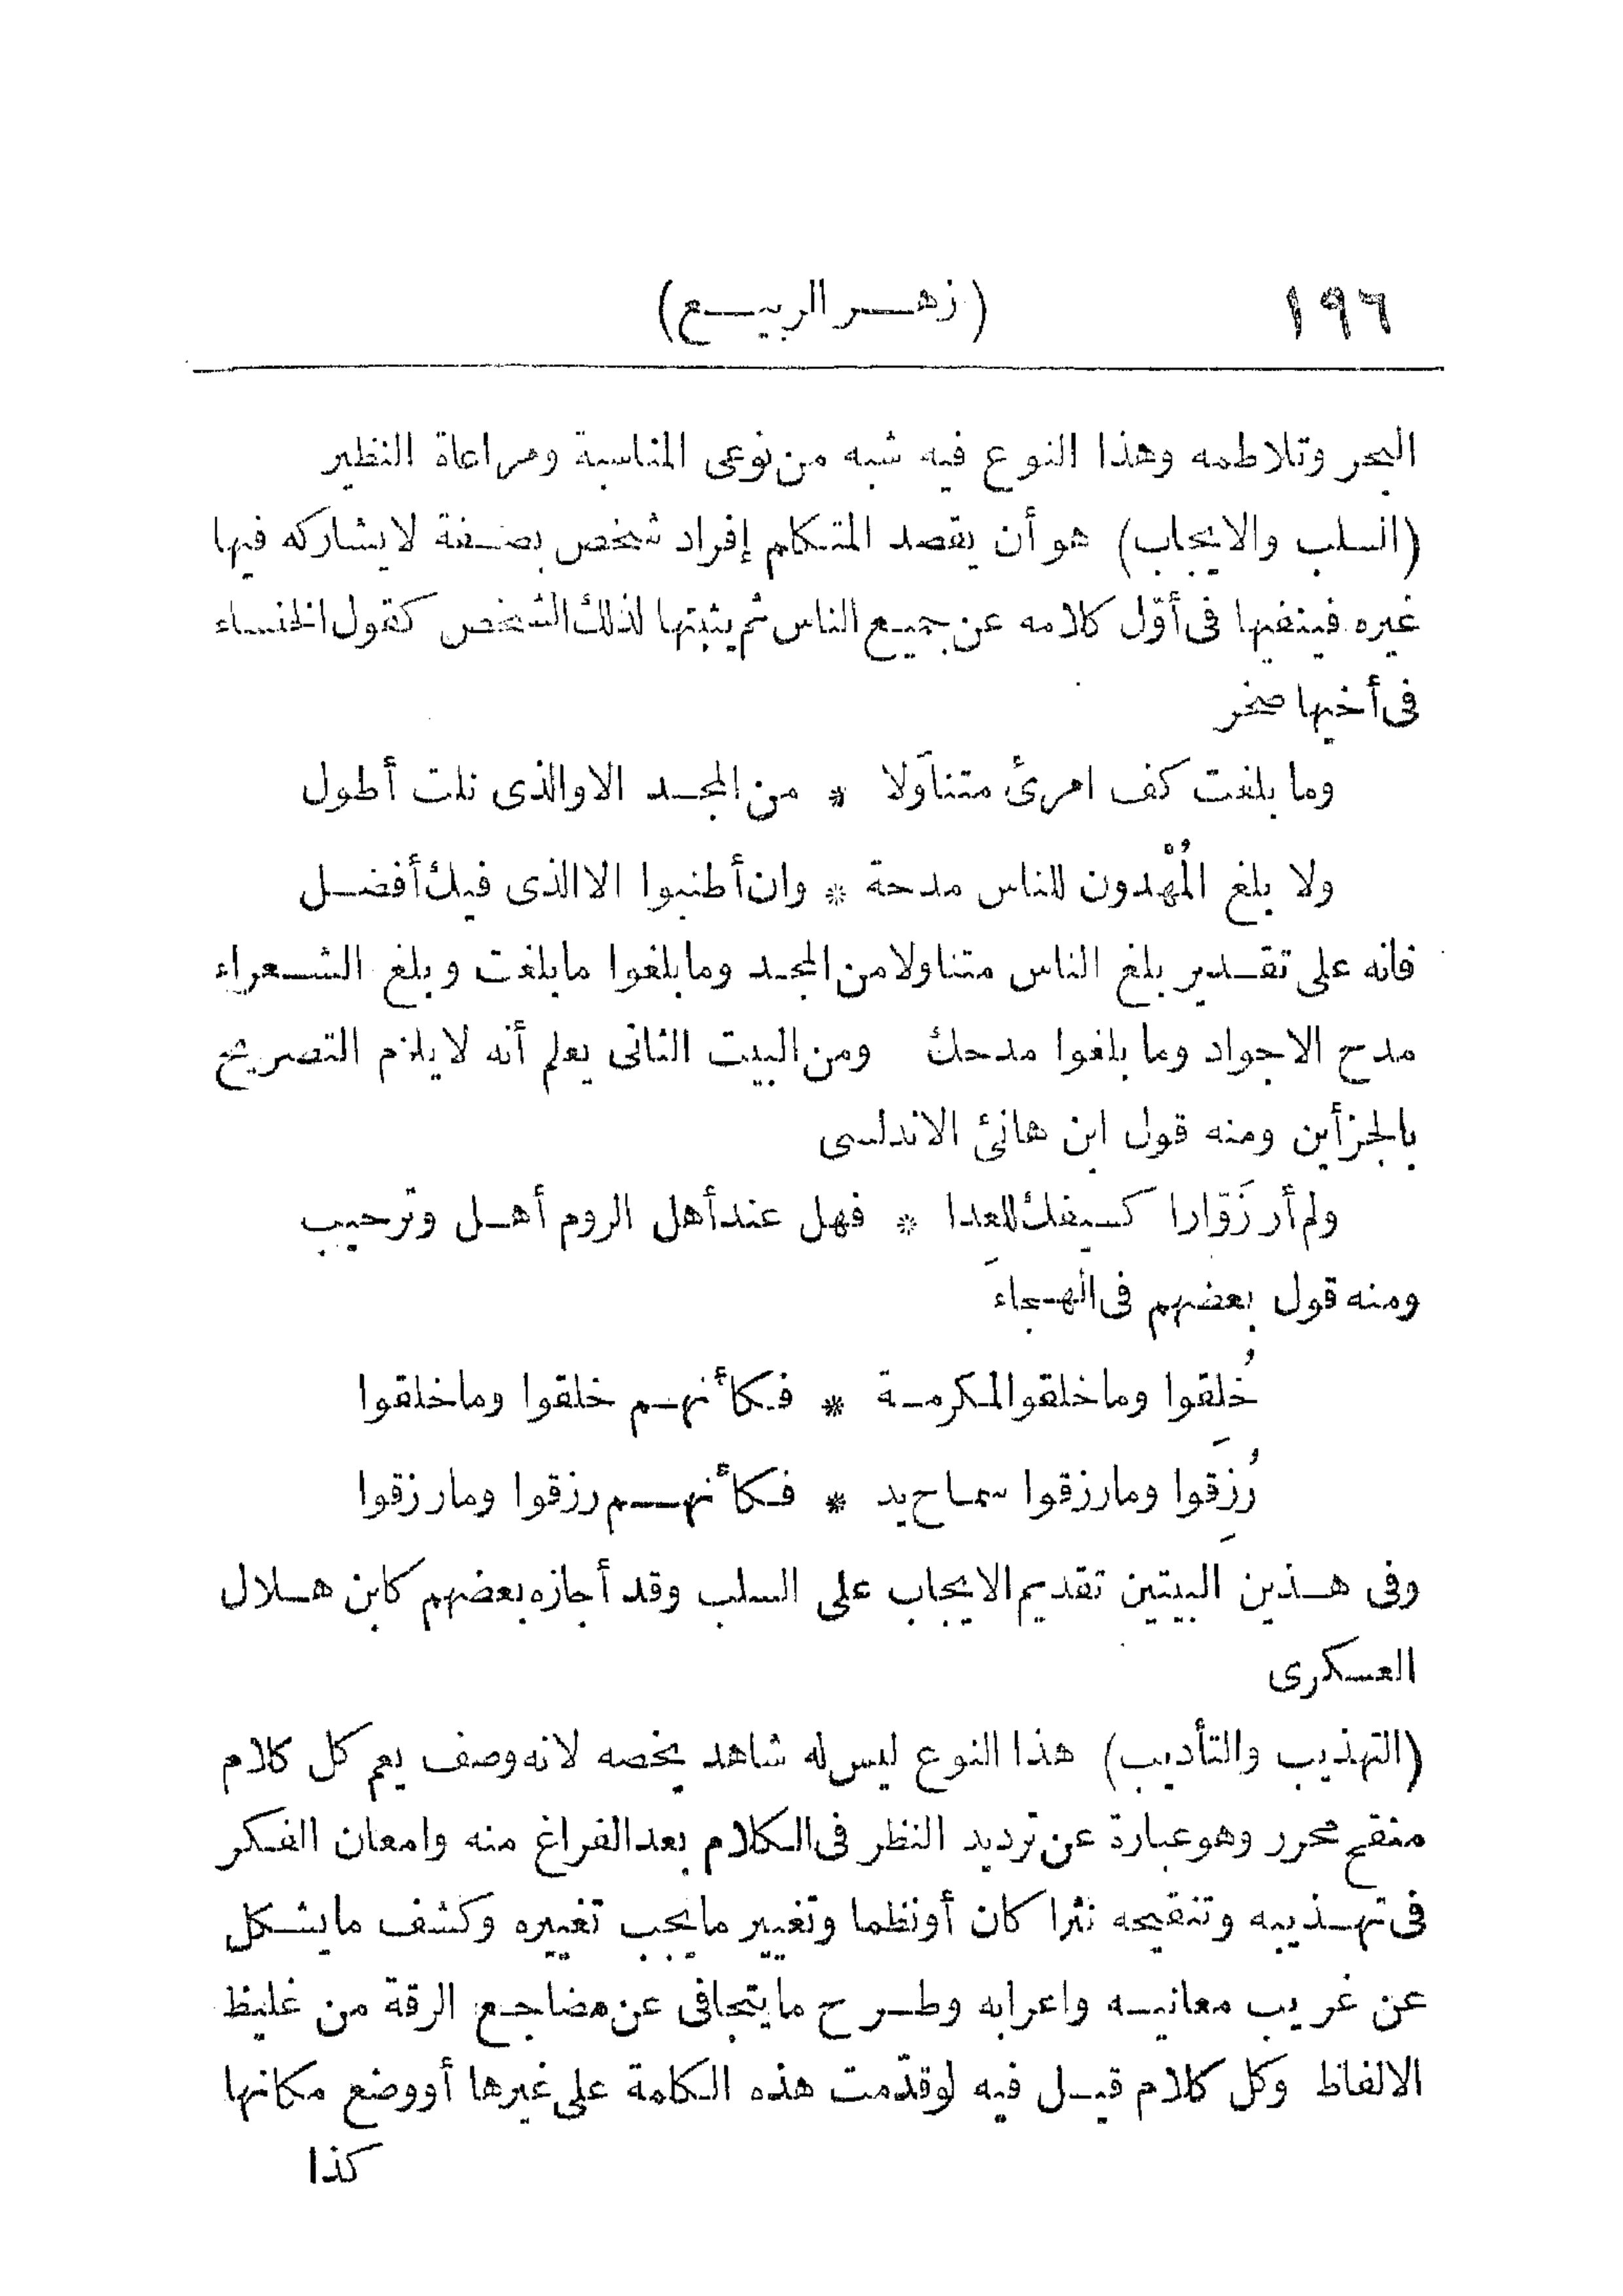 ١٩٦
(زهر الربيع)
البحر وتلاطمه وهذا النوع فيه شبه من نوعى المناسبة ومراعاة النظير
(السلب والايجاب) هو أن يقصد المتكلم إفراد شخص بصفة لا يشاركه فيها
غيره فينفيها فى أوّل كلامه عن جميع الناس ثم يثبتها لذلك الشخص كقول الخنساء
فى أخيها صخر
وما بلغت كف امرئ متناوَلا * من المجد الا والذى نلت أطول
ولا بلغ المُهْدون للناس مدحة * وان أطنبوا الا الذى فيك أفضل
فانه على تقدير بلغ الناس متناولا من المجد وما بلغوا ما بلغت وبلغ الشعراء
مدح الاجواد وما بلغوا مدحك ومن البيت الثانى يعلم أنه لا يلزم التصريح
بالجزأين ومنه قول ابن هانئ الاندلسى
ولم أر زَوّارا كسيفك للعِدا * فهل عند أهل الروم أهل وترحيب
ومنه قول بعضهم فى الهجاء
خُلِقوا وما خلقوا لمكرمة * فكأنهم خلقوا وما خلقوا
رُزِقوا وما رزقوا سماح يد * فكأنهم رزقوا وما رزقوا
وفى هذين البيتين تقديم الايجاب على السلب وقد أجازه بعضهم كابن هلال
العسكرى
(التهذيب والتأديب) هذا النوع ليس له شاهد يخصه لانه وصف يعم كل كلام
منقح محرر وهو عبارة عن ترديد النظر فى الكلام بعد الفراغ منه وامعان الفكر
فى تهذيبه وتنقيحه نثرا كان أو نظما وتغيير ما يجب تغييره وكشف ما يشكل
عن غريب معانيه واعرابه وطرح ما يتجافى عن مضاجع الرقة من غليظ
الالفاظ وكل كلام قيل فيه لو قدّمت هذه الكلمة على غيرها أو وضع مكانها
كذا